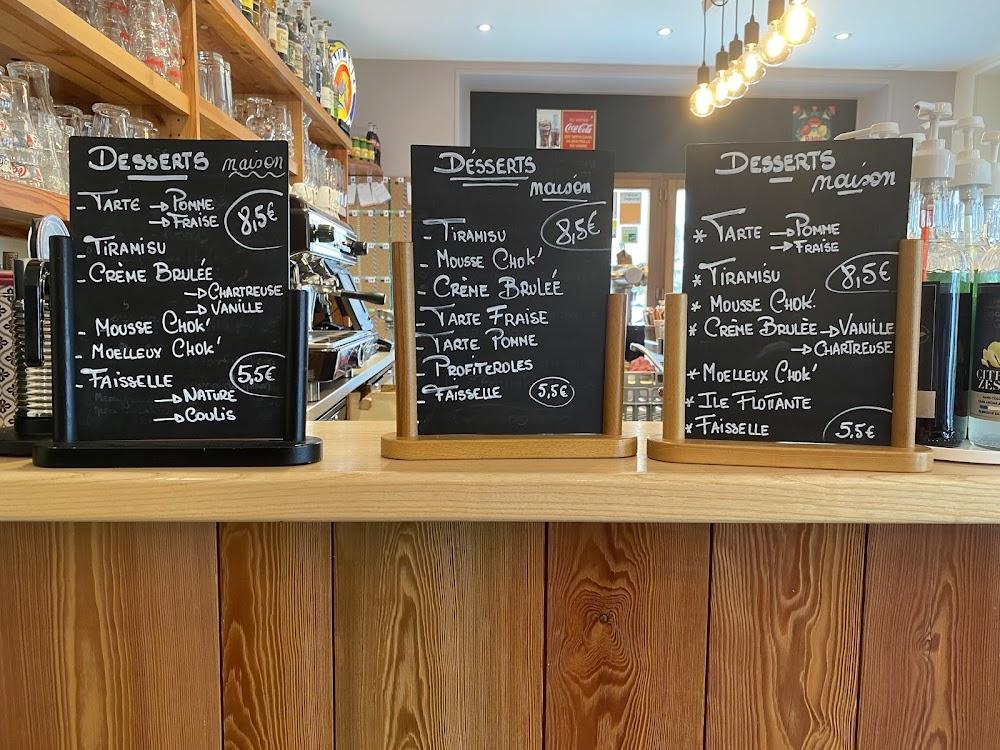 DESSERTS maison
- TARTE → POMME
→ FRAISE
8,5€
- TIRAMISU
- CRÈME BRULÉE
→ CHARTREUSE
→ VANILLE
- MOUSSE CHOK'
- MOELLEUX CHOK'
- FAISSELLE
5,5€
→ NATURE
→ COULIS
DÉSSERTS
maison
8,5€
- TIRAMISU
- MOUSSE CHOK'
- CRÈME BRULÉE
- TARTE FRAISE
- TARTE POMME
- PROFITEROLES
- FAISSELLE 5,5€
DESSERTS
maison
* TARTE → POMME
→ FRAISE
* TIRAMISU
8,5€
* MOUSSE CHOK'
* CRÈME BRULÈE → VANILLE
→ CHARTREUSE
* MOELLEUX CHOK'
* ILE FLOTTANTE
* FAISSELLE 5,5€
Coca-Cola